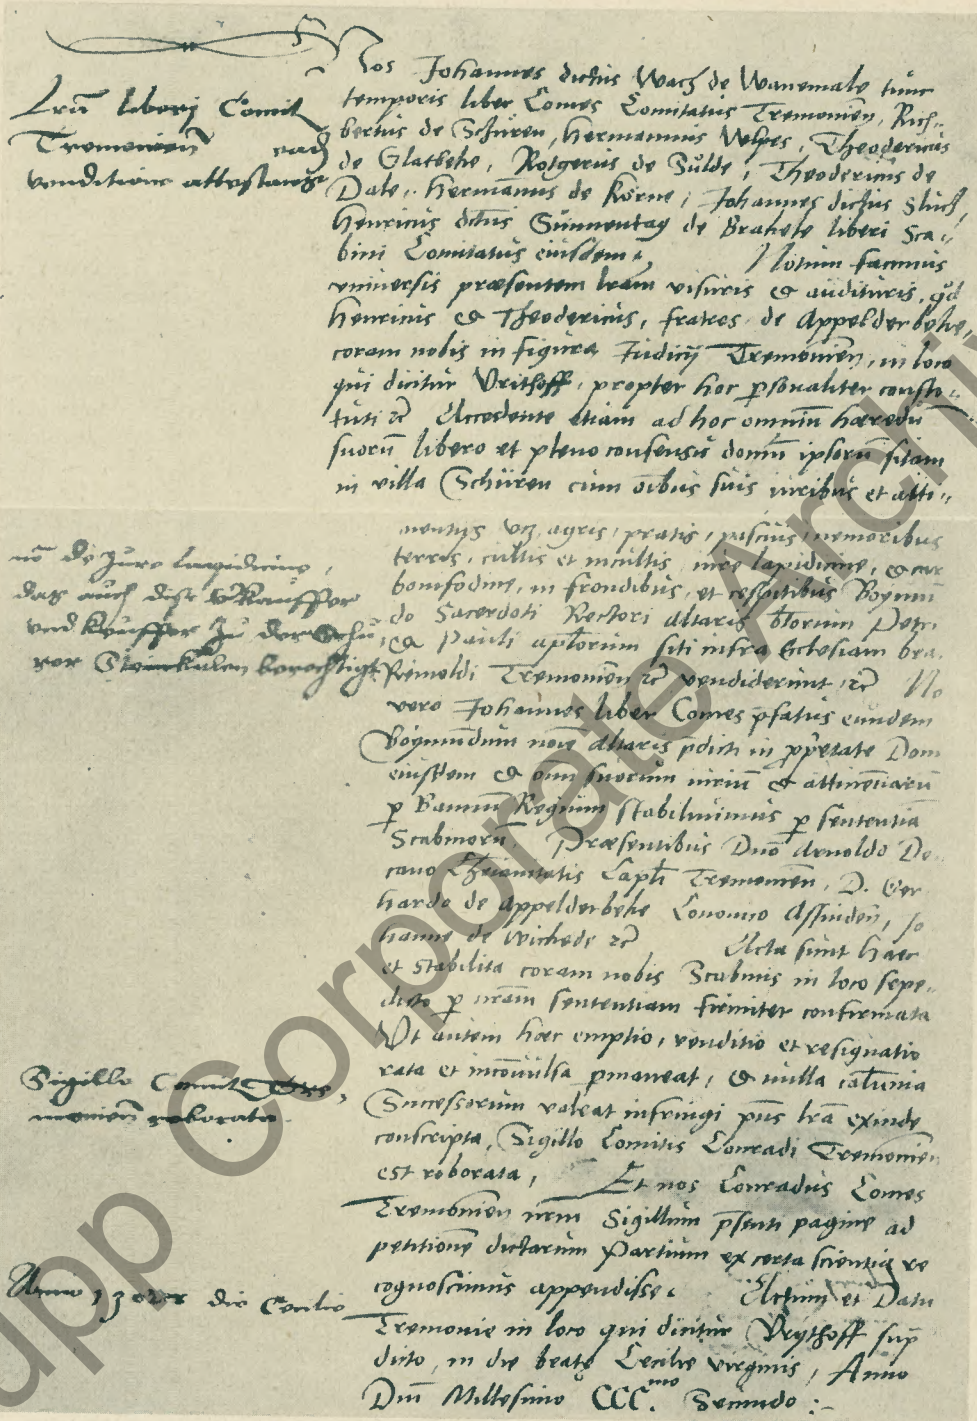 Nos Johannes dictus Wach de Wanemale tunc
temporis liber Comes Comitatus Tremonien, Rich-
bertus de Schüren, Hermannus Velpes, Theodericus
de Glatbeke, Rotgerus de Sulde, Theodericus de
Dale, Hermannus de Körne, Johannes dictus Sluch,
Henricus dctus Sunnentag de Brakele liberi Sca-
bini Comitatus eiusdem, Notum facimus
universis præsentem lram visuris & audituris, qd
Henricus & Theodericus, fratres de Appelderbeke,
coram nobis in figura Judicij Tremonien, in loco
qui dicitur Vrithoff, propter hoc psonaliter consti-
tuti etc Accedente etiam ad hoc omnium hæredu
suoru libero et pleno consensu domu ipsoru sitam
in villa Schüren cum oibus suis iuribus et atti-
nentijs vcz agris, pratis, pascuis, nemoribus
terris, cultis et incultis, iure lapidicine, & car
bonifodine, in frondibus, et cespitibus Boÿmun
do Sacerdoti Rectori altaris btorum Petri
& Pauli aplorum siti infra Ecclesiam bea.
Reinoldi Tremonien etc vendiderunt, etc No
vero Johannes liber Comes pfatus eundem
Boÿmundum noie altaris pdicti in propetate Dom
eiusdem & oim suorum iuriu & attinentiaru
p Bannu Regium stabiliuimus p sententia
Scabinoru, Præsentibus Dno Arnoldo De-
cano Chrianitatis Capli Tremonien, D. Ger
hardo de Appelderbeke Canonico Assinden, Jo
hanne de Wickede etc Acta sunt hæc
et stabilita coram nobis Scabinis in loco sepe-
dicto p nram sententiam firmiter confirmata
Vt autem hæc emptio, venditio et resignatio
rata et inconuulsa pmaneat, & nulla calunia
Successorum valeat infringi pns lra exinde
conscripta, Sigillo Comitis Conradi Tremonien
est roborata, Et nos Conradus Comes
Tremonien nrm Sigillum psenti pagine ad
petitione dictarum Partium ex certa scientia re
cognoscimus appendisse. Actum et Datu
Tremonie in loco qui dicitur Vrÿthoff sup
dicto, in die beate Cecilie virginis, Anno
Dni Millesimo CCC.mo Secundo :-
Lra liberj Comit
Tremonien
venditione attestantis
de Jure lapidicine,
das auch dise Vkauffer
vnd keuffer zu der Schu
rer Steinkulen berechtigt.
Sigillo Comit Tre,
monien roborata.
Anno 1302 die Cecilie
upp Corporate Archiv